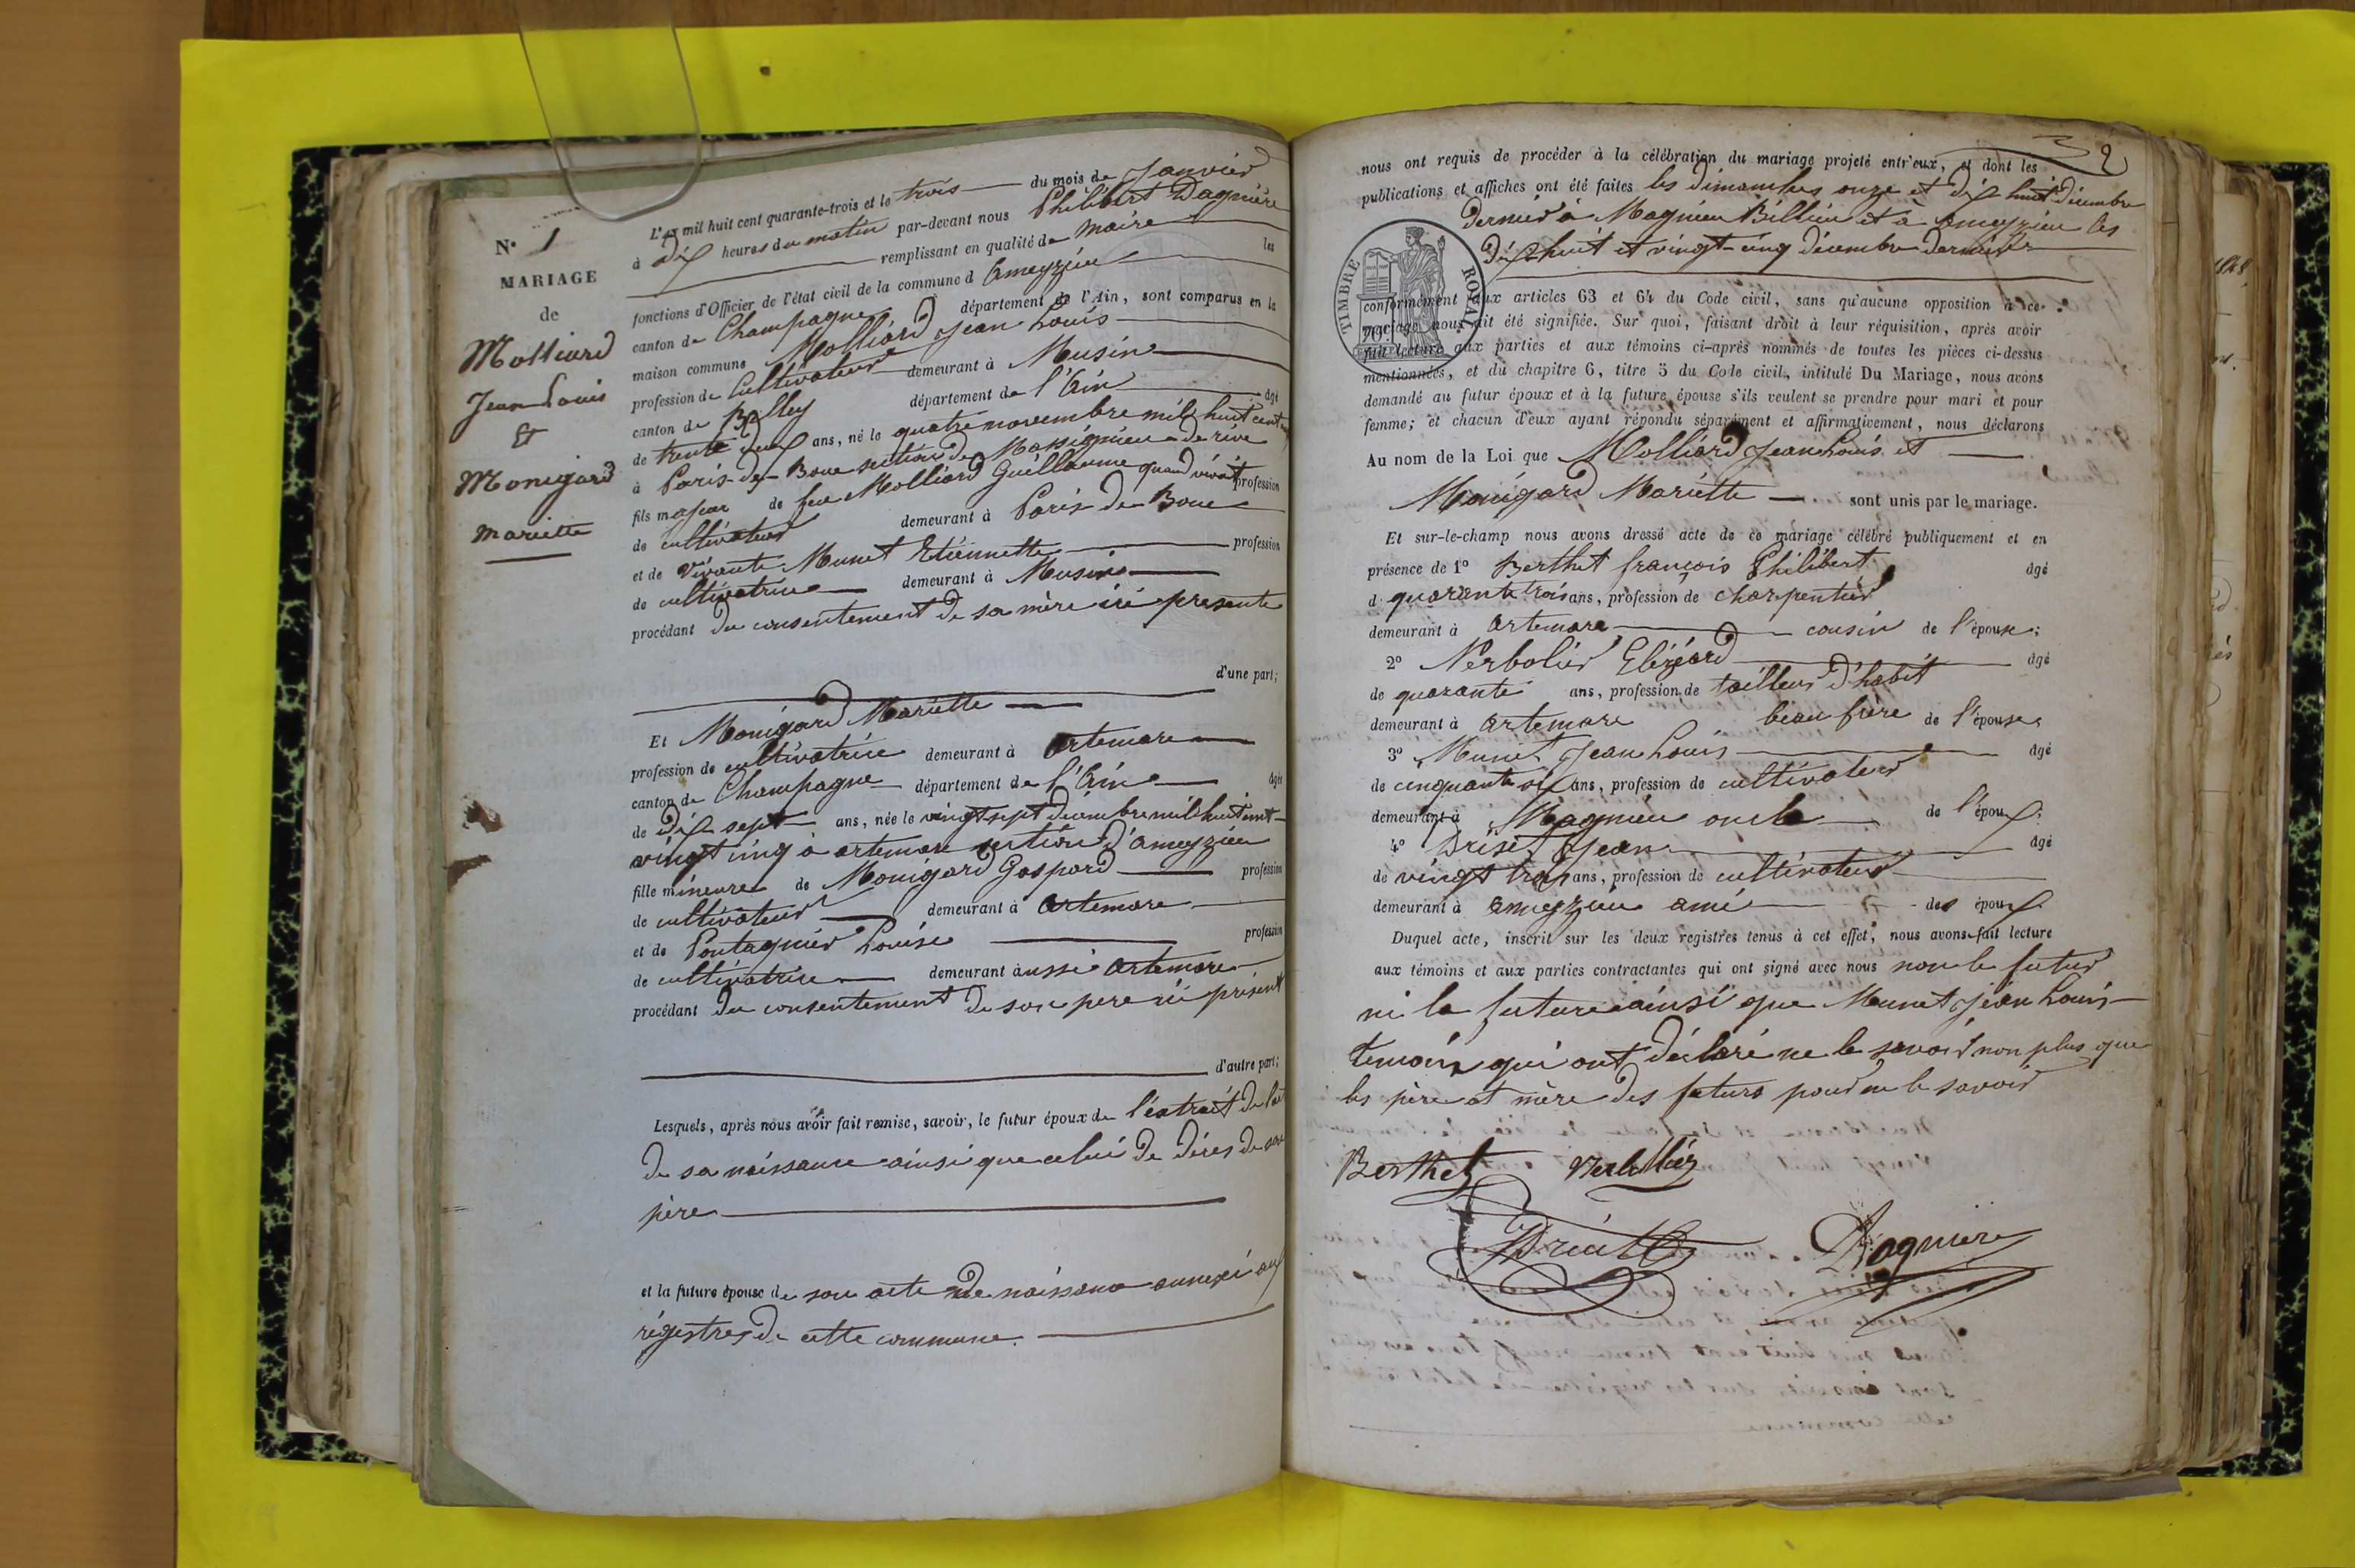 N° 1
MARIAGE
de
Molliard
Jean Louis
Et
Monigard
Mariette
L'an mil huit cent quarante-trois et le trois du mois de Janvier
à Dix heures du matin par-devant nous Philibert Dagnière
remplissant en qualité de Maire les
fonctions d'Officier de l'état civil de la commune d Ameyzieu
canton de Champagne département de l'Ain, sont comparus en la
maison commune Molliard Jean Louis
profession de Cultivateur demeurant à Musin
canton de Belley département de l'Ain âgé
de trente deux ans, né le quatre novembre mil huit cent
à Paris-de-Boue section de Massignieu de rive
fils majeur de feu Molliard Guillaume quand vivait profession
de cultivateur demeurant à Paris de Boue
et de vivante Munet Etiennette profession
de cultivatrice demeurant à Musin
procédant du consentement de sa mère ici presente
d'une part;
Et Monigard Mariette
profession de cultivatrice demeurant à Artemare
canton de Champagne département de l'Ain âgée
de Dix sept ans, née le vingt sept décembre mil huit cent
vingt cinq à artemare section d'ameyzieu
fille mineure de Monigard Gaspard profession
de cultivateur demeurant à Artemare
et de Pontagnier Louise profession
de cultivatrice demeurant aussi à Artemare
procédant du consentement de son pere ici présent
d'autre part;
Lesquels, après nous avoir fait remise, savoir, le futur époux de l'extrait de l'acte
de sa naissance ainsi que celui de décès de son
père
et la future épouse de son acte de naissance annexé aux
régistres de cette commune.
2
nous ont requis de procéder à la célébration du mariage projeté entr'eux, et dont les
publications et affiches ont été faites les dimanches onze et dix huit décembre
dernier à Magnieu Billieu et à Ameyzieu les
dix huit et vingt-cinq décembre dernier
TIMBRE ROYAL
conformément aux articles 63 et 64 du Code civil, sans qu'aucune opposition à ce
mariage nous ait été signifiée. Sur quoi, faisant droit à leur réquisition, après avoir
fait lecture aux parties et aux témoins ci-après nommés de toutes les pièces ci-dessus
mentionnées, et du chapitre 6, titre 5 du Code civil, intitulé Du Mariage, nous avons
demandé au futur époux et à la future épouse s'ils veulent se prendre pour mari et pour
femme; et chacun d'eux ayant répondu séparément et affirmativement, nous déclarons
Au nom de la Loi que Molliard Jean Louis et
Monigard Mariette sont unis par le mariage.
Et sur-le-champ nous avons dressé acte de ce mariage célébré publiquement et en
présence de 1° Berthet françois Philibert âgé
d quarente trois ans, profession de charpentier
demeurant à Artemare cousin de l'épouse;
2° Verbolier Elzéard âgé
de quarante ans, profession de tailleur d'habit
demeurant à Artemare beau frère de l'épouse;
3° Munet Jean Louis âgé
de cinquante six ans, profession de cultivateur
demeurant à Magnieu oncle de l'époux;
4° Jean âgé
de vingt trois ans, profession de cultivateur
demeurant à ameyzieu ami des époux.
Duquel acte, inscrit sur les deux registres tenus à cet effet, nous avons fait lecture
aux témoins et aux parties contractantes qui ont signé avec nous non le futur
ni la future ainsi que Munet Jean Louis
temoin qui ont déclaré ne le savoir non plus que
les père et mère des futurs pour ne le savoir
Berthet
Dagnière